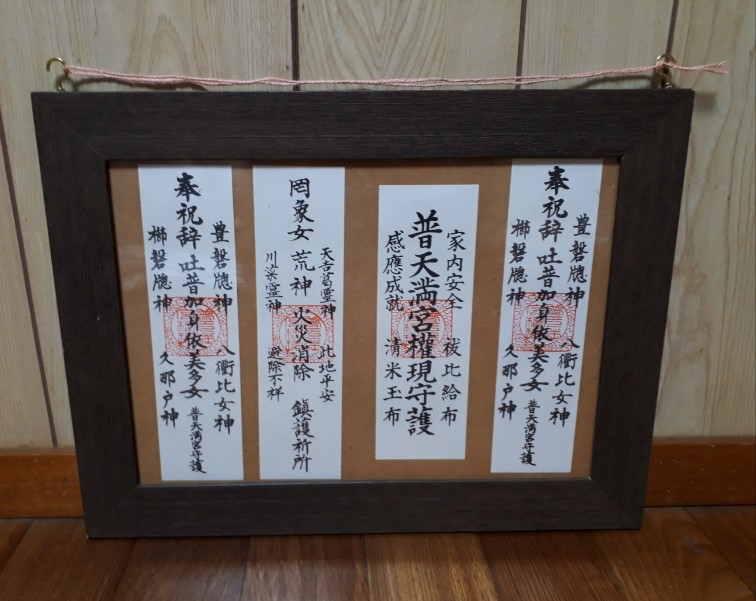 豊磐牕神 八衢比女神
奉祝辞 吐普加身依美多女 普天満宮守護
櫛磐牕神 久那戸神
家内安全 祓比給布
普天満宮權現守護
感應成就 清米玉布
天吉葛霊神 此地平安
罔象女 荒神 火災消除 鎮護祈所
川菜霊神 避除不祥
豊磐牕神 八衢比女神
奉祝辞 吐普加身依美多女 普天満宮守護
櫛磐牕神 久那戸神